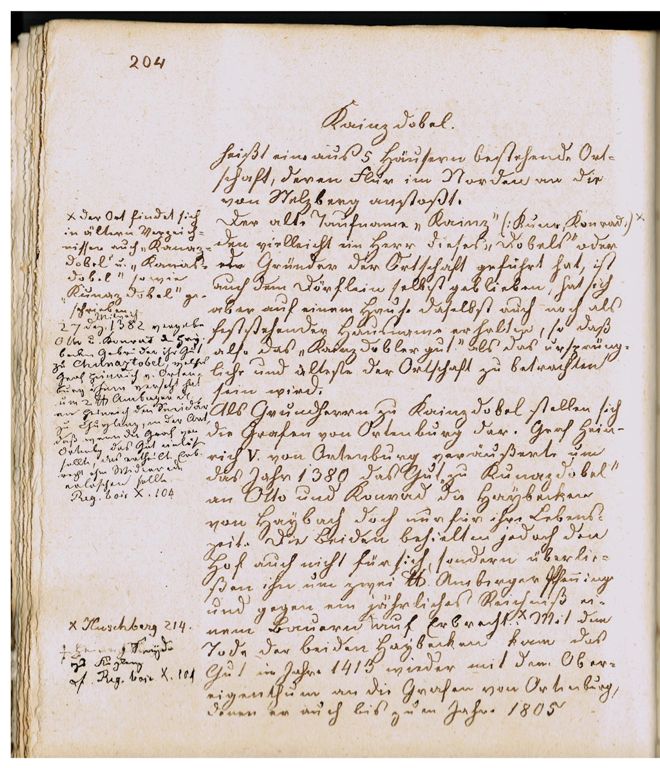 204
Kainzdobel.
heißt eine aus 5 Häusern bestehende Ort-
schaft, deren Flur im Norden an die
von Walzberg anstoßt.
Der alte Taufname „Kainz" (: Kunz, Konrad :) x
den vielleicht ein Herr dieses „Dobels" oder
der Gründer der Ortschaft geführt hat, ist
auch dem Dörflein selbst geblieben, hat sich
aber auf einem Hause daselbst auch noch als
feststehender Hausname erhalten, so daß
also das „Kainzdoblergut" als das ursprüng-
liche und älteste der Ortschaft zu betrachten
sein wird.
Als Grundherrn zu Kainzdobel stellen sich
die Grafen von Ortenburg dar. Graf Hein-
rich V. von Ortenburg veräußerte um
das Jahr 1380 das Gut zu „Kunazdobel"
an Otto und Konrad die Haybecken
von Haybach doch nur für ihre Lebens-
zeit. Die Beiden behielten jedoch den
Hof auch nicht für sich, sondern überlie-
ßen ihn um zwei ℔ Amberger Pfeninge
und gegen ein jährliches Reichniß ei-
nem Bauern auf Erbrecht. x Mit dem
Tode der beiden Haybecken kam das
Gut im Jahre 1413 wieder mit dem Ober-
eigenthum an die Grafen von Ortenburg,
denen er auch bis zum Jahre 1805
x der Ort findet sich
in ältern Verzeich-
nissen auch „Kunaz-
dobel" u. „Konrads-
dobel" sowie
„Kunaz dobel" ge-
schrieben.
27 Dez. 1382
Otto u. Konrad d.
Gebrüder ihr Gut
zu
Graf Heinrich v. Orten-
burg ihnen versetzt hat
um 2 ℔ Amberger dl.
zu in der Art
daß wenn der Graf von
Ortenb. das Gut einlöst
erlöschen sollte.
Reg. boic X. 104
x Huschberg 214.
cf. Reg. boic X. 104